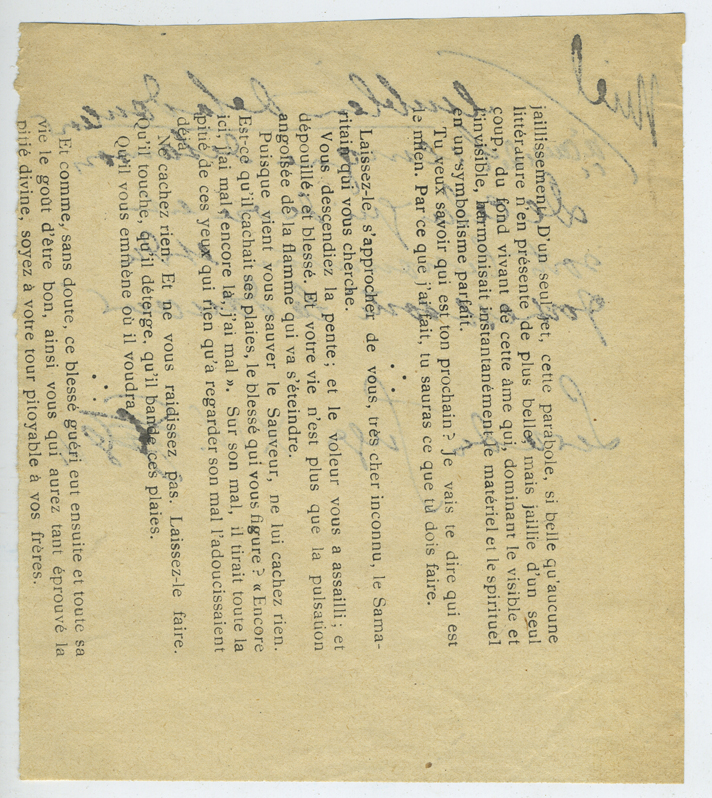 jaillissement. D'un seul jet, cette parabole, si belle qu'aucune
littérature n'en présente de plus belle, mais jaillie d'un seul
coup, du fond vivant de cette âme qui, dominant le visible et
l'invisible, harmonisait instantanément le matériel et le spirituel
en un symbolisme parfait.
Tu veux savoir qui est ton prochain ? Je vais te dire qui est
le mien. Par ce que j'ai fait, tu sauras ce que tu dois faire.
Laissez-le s'approcher de vous, très cher inconnu, le Sama-
ritain qui vous cherche.
Vous descendiez la pente ; et le voleur vous a assailli ; et
dépouillé, et blessé. Et votre vie n'est plus que la pulsation
angoissée de la flamme qui va s'éteindre.
Puisque vient vous sauver le Sauveur, ne lui cachez rien.
Est-ce qu'il cachait ses plaies, le blessé qui vous figure ? « Encore
ici, j'ai mal, encore là, j'ai mal ». Sur son mal, il tirait toute la
pitié de ces yeux qui rien qu'a regarder son mal l'adoucissaient
déjà.
Ne cachez rien. Et ne vous raidissez pas. Laissez-le faire.
Qu'il touche, qu'il déterge, qu'il bande ces plaies.
Qu'il vous emmène où il voudra.
Et comme, sans doute, ce blessé guéri eut ensuite et toute sa
vie le goût d'être bon, ainsi vous qui aurez tant éprouvé la
pitié divine, soyez à votre tour pitoyable à vos frères.